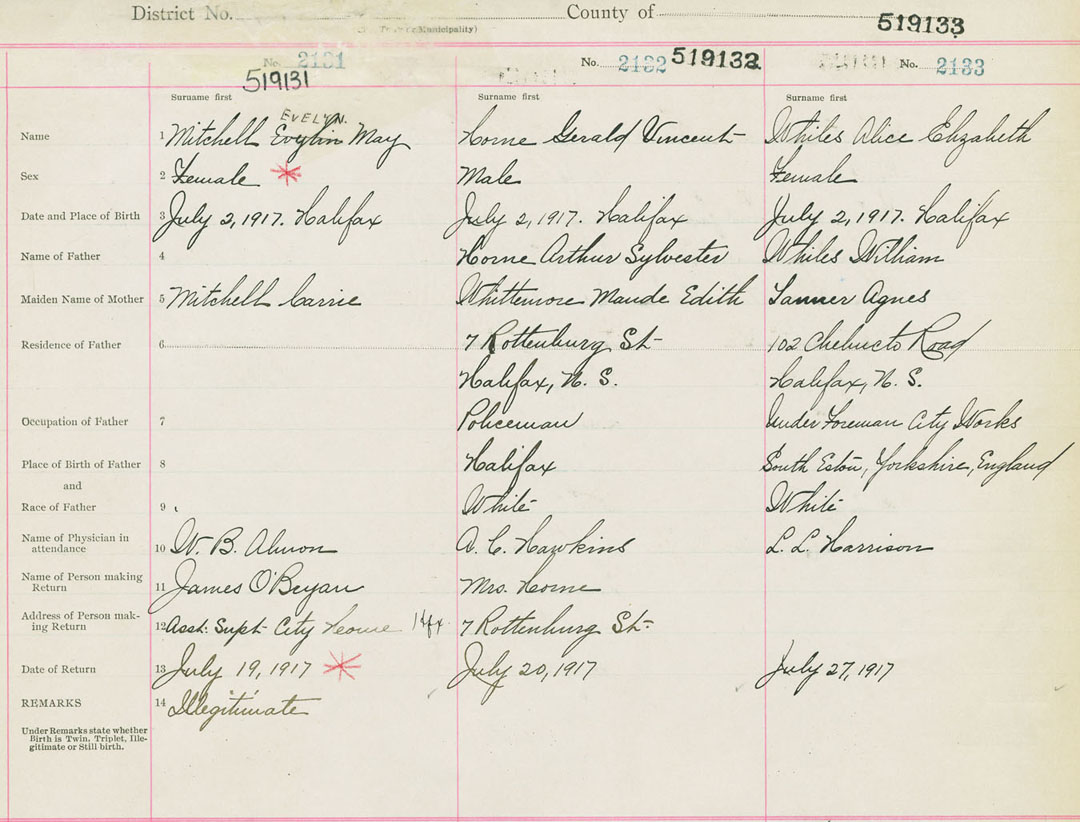 District No. County of
Municipality)
519133
No. 2131 No. 2132 519132 No. 2133
519131
Surname first Surname first Surname first
EVELYN.
Name 1 Mitchell Evylin May Horne Gerald Vincent Whiles Alice Elizabeth
Sex 2 Female * Male Female
Date and Place of Birth 3 July 2, 1917. Halifax July 2, 1917. Halifax July 2, 1917. Halifax
Name of Father 4 Horne Arthur Sylvester Whiles William
Maiden Name of Mother 5 Mitchell Carrie Whittemore Maude Edith Tanner Agnes
Residence of Father 6 7 Rottenburg St- 102 Chebucto Road
Halifax, N. S. Halifax, N. S.
Occupation of Father 7 Policeman Under Foreman City Works
Place of Birth of Father 8 Halifax South Eston, Yorkshire, England
and
Race of Father 9 White White
Name of Physician in
attendance 10 W. B. Almon A. C. Hawkins L. L. Harrison
Name of Person making
Return 11 James O'Bryan Mrs. Horne
Address of Person mak-
ing Return 12 Asst. Supt. City Home Hfx. 7 Rottenburg St-
Date of Return 13 July 19, 1917 * July 20, 1917 July 27, 1917
REMARKS 14 Illegitimate
Under Remarks state whether
Birth is Twin, Triplet, Ille-
gitimate or Still birth.